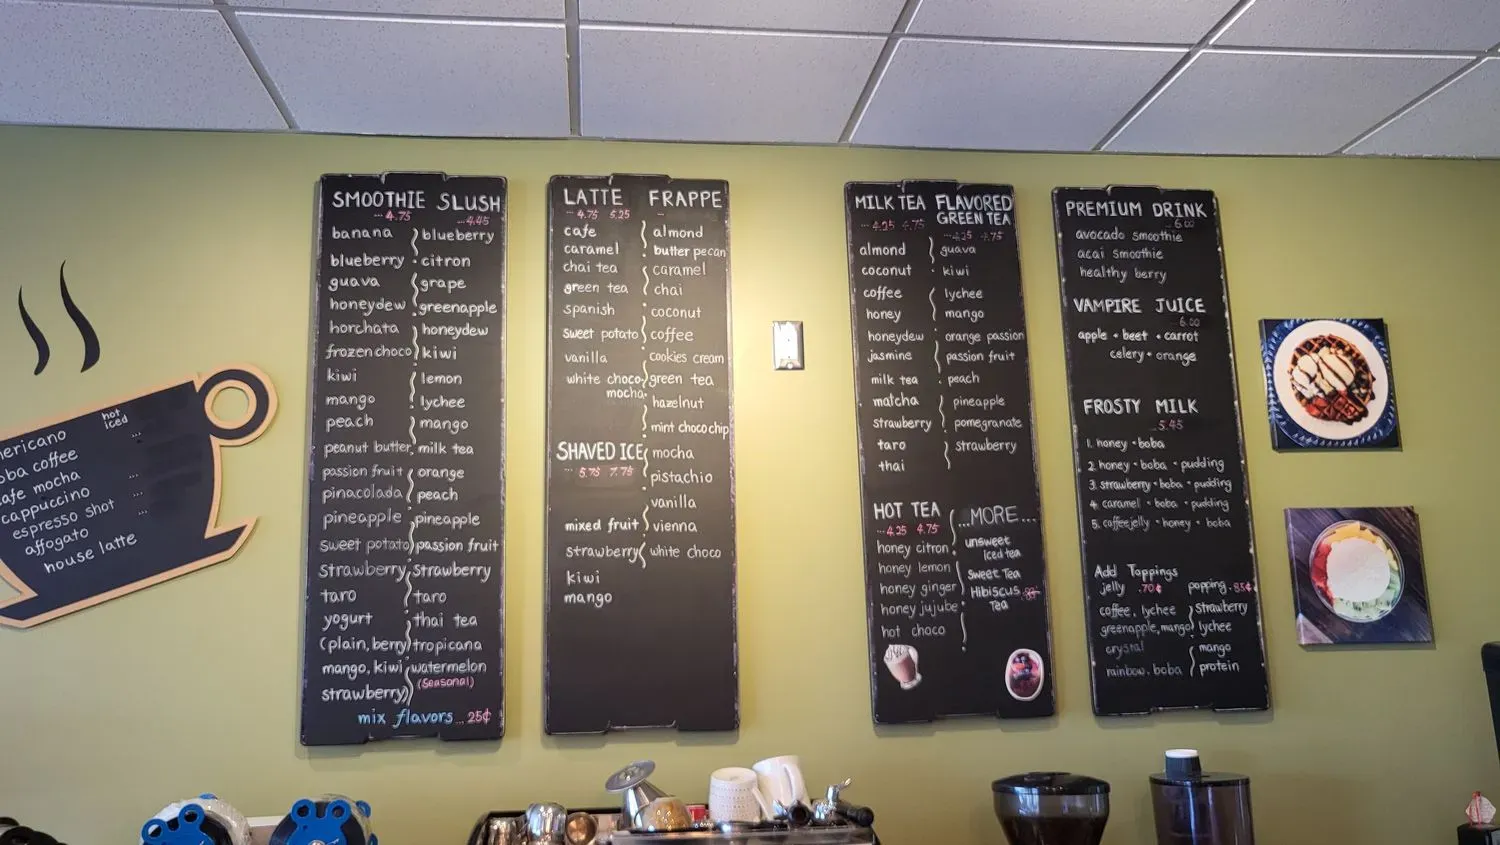 hot
iced
...
americano
boba coffee
cafe mocha
...
cappuccino
espresso shot
...
affogato
house latte
SMOOTHIE
...4.75
banana
blueberry
guava
honeydew
horchata
frozen choco
kiwi
mango
peach
peanut butter
passion fruit
pinacolada
pineapple
sweet potato
strawberry
taro
yogurt
(plain, berry
mango, kiwi
strawberry)
SLUSH
...4.45
blueberry
citron
grape
greenapple
honeydew
kiwi
lemon
lychee
mango
milk tea
orange
peach
pineapple
passion fruit
strawberry
taro
thai tea
tropicana
watermelon
(Seasonal)
mix flavors ... 25¢
LATTE
... 4.75 5.25
cafe
caramel
chai tea
green tea
spanish
sweet potato
vanilla
white choco
mocha
SHAVED ICE
... 5.75 7.75
mixed fruit
strawberry
kiwi
mango
FRAPPE
almond
butter pecan
caramel
chai
coconut
coffee
cookies cream
green tea
hazelnut
mint choco chip
mocha
pistachio
vanilla
vienna
white choco
MILK TEA
... 4.25 4.75
almond
coconut
coffee
honey
honeydew
jasmine
milk tea
matcha
strawberry
taro
thai
FLAVORED
GREEN TEA
...4.25 4.75
guava
kiwi
lychee
mango
orange passion
passion fruit
peach
pineapple
pomegranate
strawberry
HOT TEA
...4.25 4.75
honey citron
honey lemon
honey ginger
honey jujube
hot choco
...MORE...
unsweet
Iced tea
sweet Tea
Hibiscus
Tea
PREMIUM DRINK
6.00
avocado smoothie
acai smoothie
healthy berry
VAMPIRE JUICE
6.00
apple • beet • carrot
celery • orange
FROSTY MILK
...5.45
1. honey • boba
2. honey • boba • pudding
3. strawberry • boba • pudding
4. caramel • boba • pudding
5. coffeejelly • honey • boba
Add Toppings
jelly .70¢
coffee, lychee
greenapple, mango
crystal
rainbow, boba
popping .85¢
strawberry
lychee
mango
protein